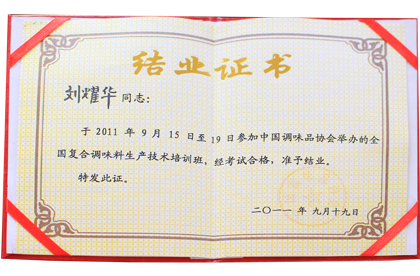 结业证书
刘耀华同志：
于2011年9月15日至19日参加中国调味品协会举办的全
国复合调味料生产技术培训班，经考试合格，准予结业。
特发此证。
二〇一一年九月十九日